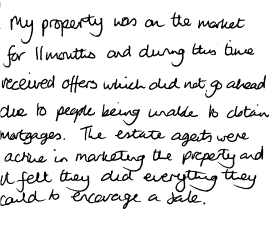 My property was on the market
for 11 months and during this time
received offers which did not go ahead
due to people being unable to obtain
mortgages. The estate agents were
active in marketing the property and
it felt they did everything they
could to encourage a sale.